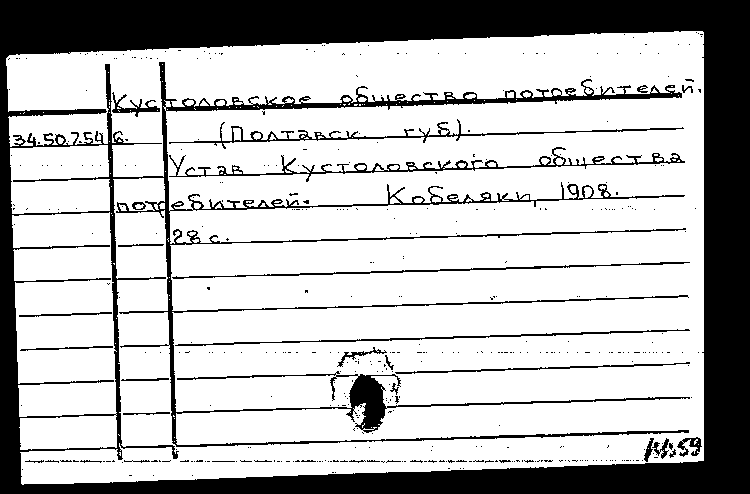 Кустоловское общество потребителей.
34.50.7.54 6. (Полтавск. губ.).
Устав Кустоловского общества
потребителей. Кобеляки, 1908.
28 с.